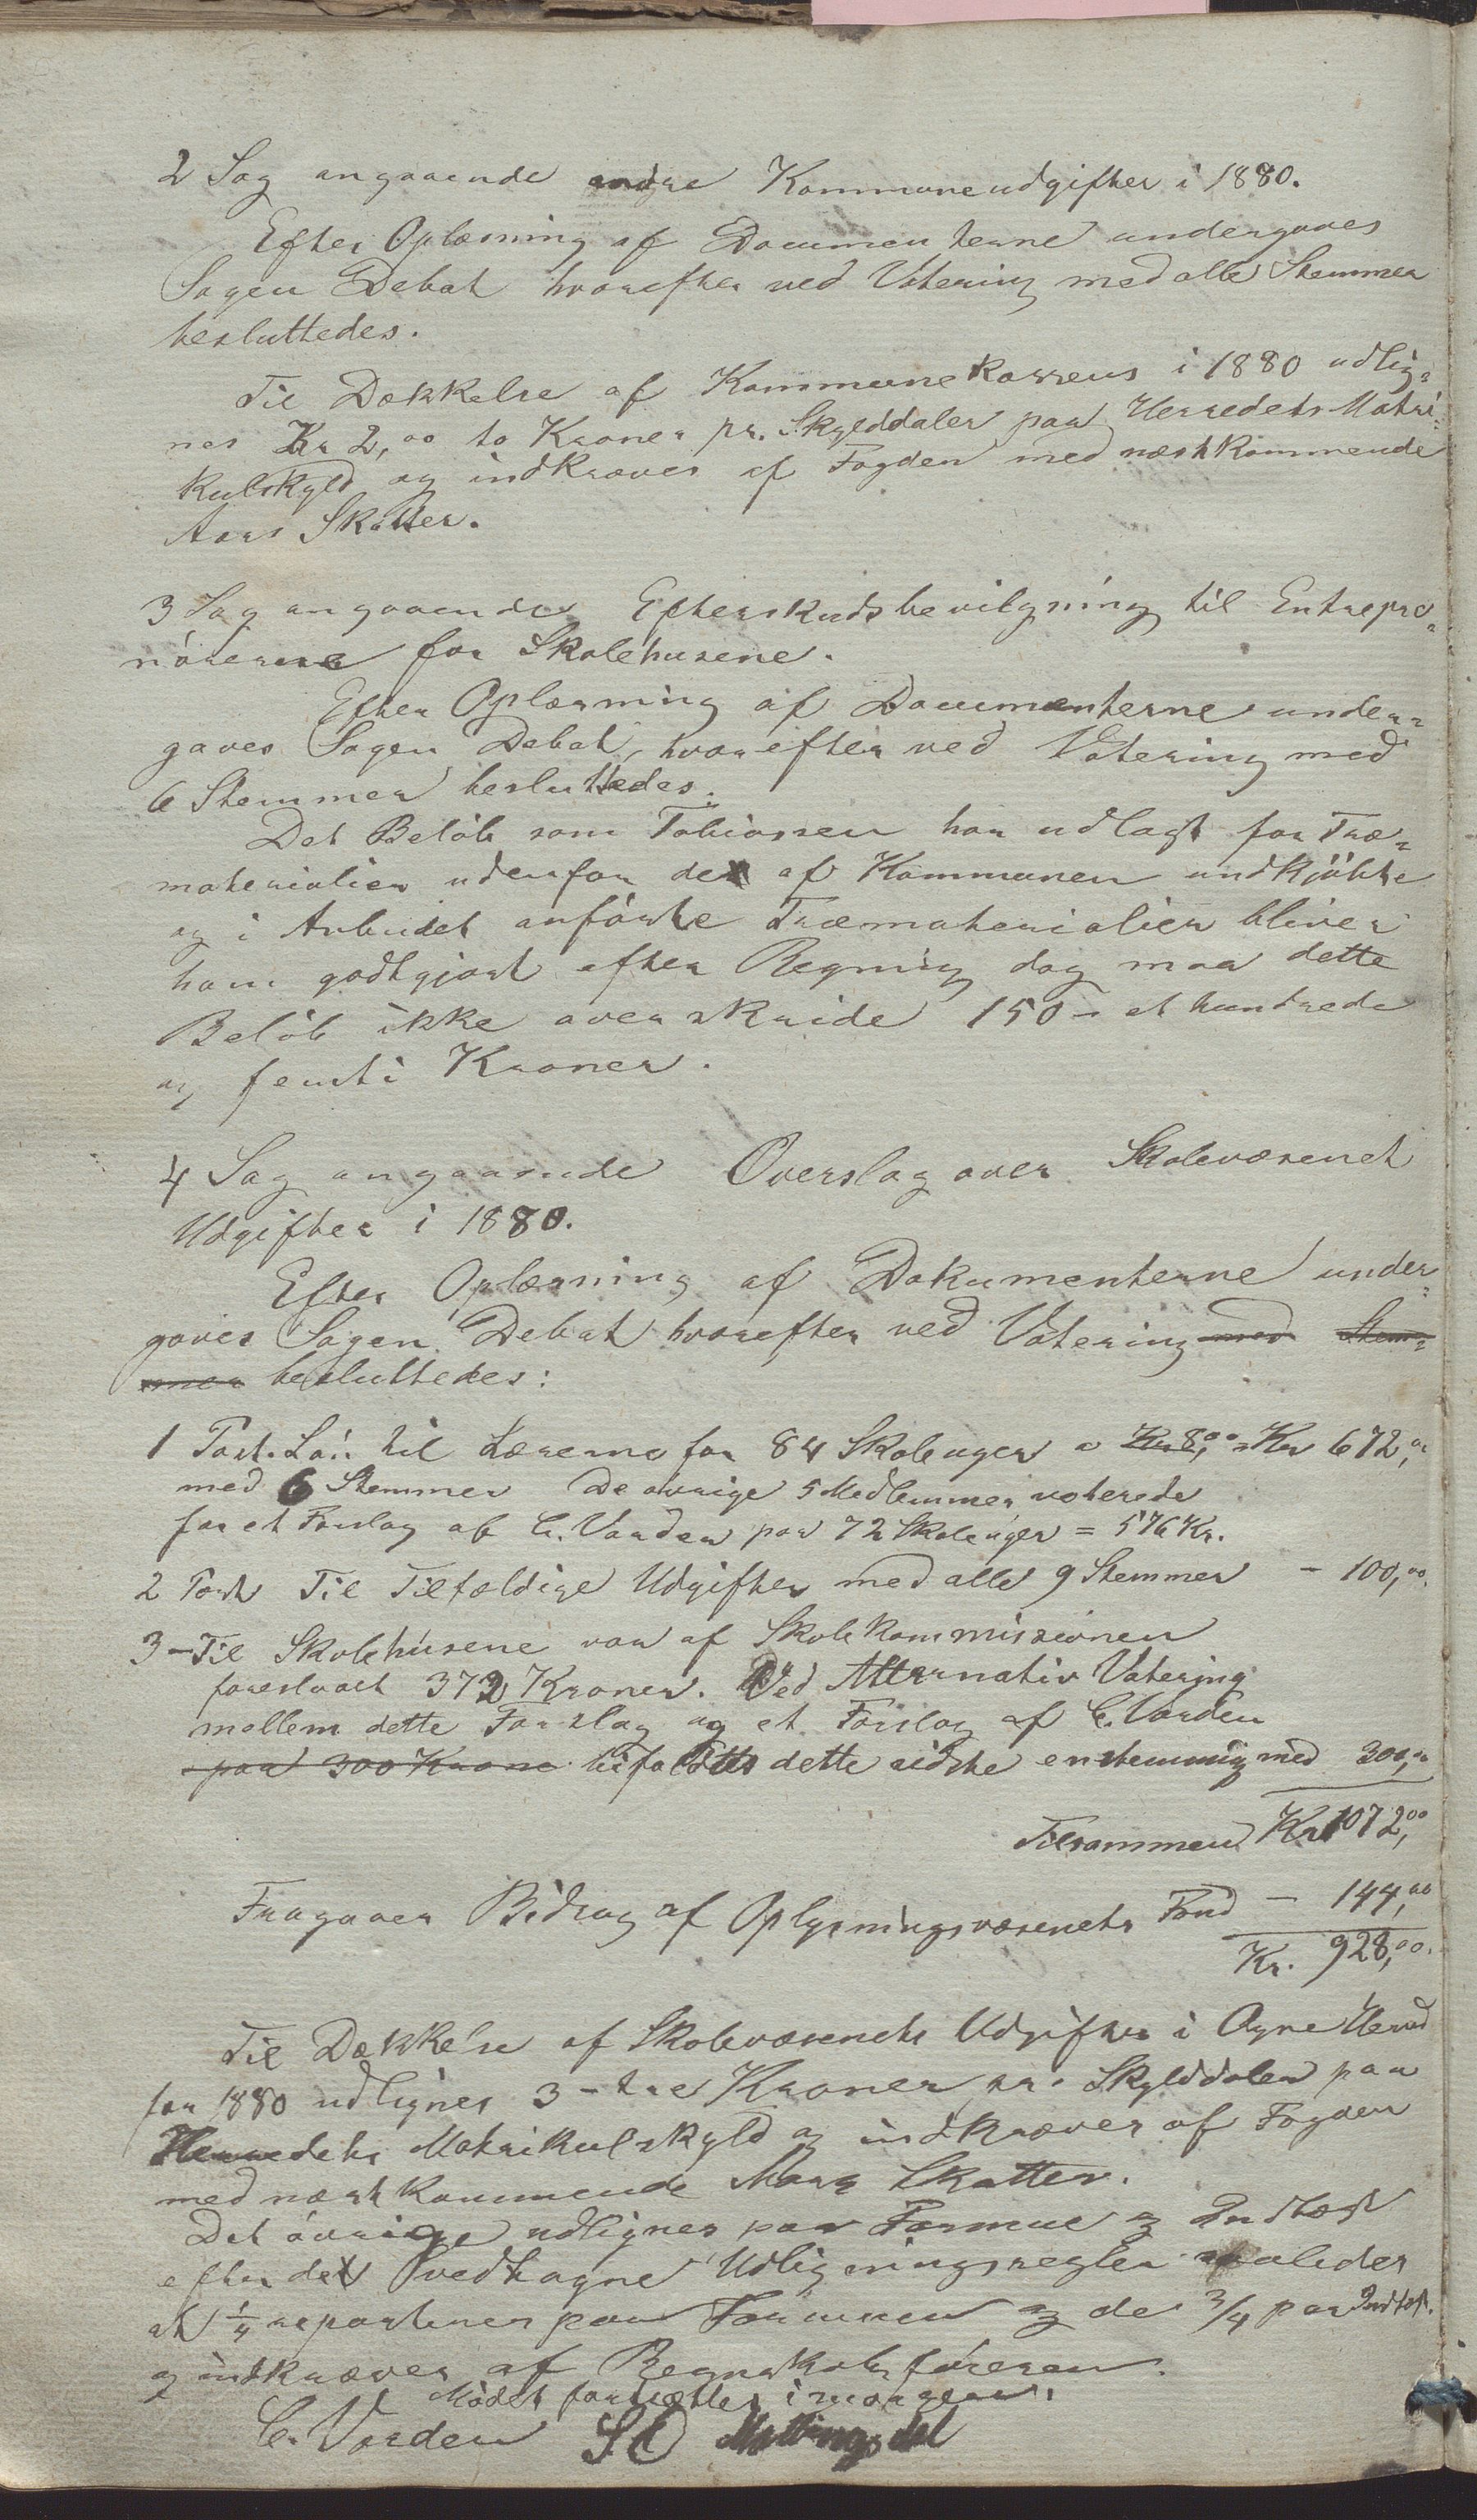 2 Sag angaaende andre Kommuneudgifter i 1880.
Efter Oplæsning af Documenterne undergaves
Sagen Debat hvorefter ved Votering med alle Stemmer
besluttedes.
Til Dækkelse af Kommunekassens i 1880 udlig-
nes Kr 2,00 to Kroner pr. Skylddaler paa Herredets Matri-
kulskyld og indkræves af Fogden med næstkommende
Aars Skatter.
3 Sag angaaende Efterskudsbevilgning til Entrepre-
nörerne for Skolehusene.
Efter Oplæsning af Documenterne under-
gaves Sagen Debat, hvorefter ved Votering med
6 Stemmer besluttedes.
Det Belöb som Tobiassen har udlagt for Træ-
materialier udenfor de af Kommunen indkjöbte
og i Anbudet anförte Træmaterialier bliver
ham godtgjort efter Regning dog maa dette
Belöb ikke overskride 150 - et hundrede
og femti Kroner.
4 Sag angaaende Overslag over Skolevæsenet
Udgifter i 1880.
Efter Oplæsning af Dokumenterne under-
gaves Sagen Debat hvorefter ved Votering med Stem-
mer besluttedes:
1 Post. Lön til Lærerne for 84 Skoleuger a Kr 8,00 = Kr 672,00
med 6 Stemmer De övrige 5 Medlemmer voterede
for et Forslag af C. Varden paa 72 Skoleuger = 576 Kr.
2 Post Til Tilfældige Udgifter med alle 9 Stemmer - 100,00.
3 - Til Skolehusene var af Skolekommissionen
foreslaaet 372 Kroner. Ved Alternativ Votering
mellem dette Forslag og et Forslag af C. Varden
paa 300 Krone bifaldtes dette sidste enstemmig med 300,00
Tilsammen Kr 1072,00
Fragaaer Bidrag af Oplysningsvæsenets Fond - 144,00
Kr. 928,00.
Til Dækkelse af Skolevæsenets Udgifter i Ogne Herred
for 1880 udlignes 3 - tre Kroner pr. Skylddaler paa
Herredets Matrikulskyld og indkræves af Fogden
med næstkommende Aars Skatter.
Det övrige udlignes paa Formue og Indtægt
efter det vedtagne Udligningsregler saaledes
at 1/4 reparteres paa Formuen og de 3/4 paa Indtægt.
og indkræves af Regnskabsföreren.
Mödet fortsættes i morgen.
C. Varden S O Mattingsdal